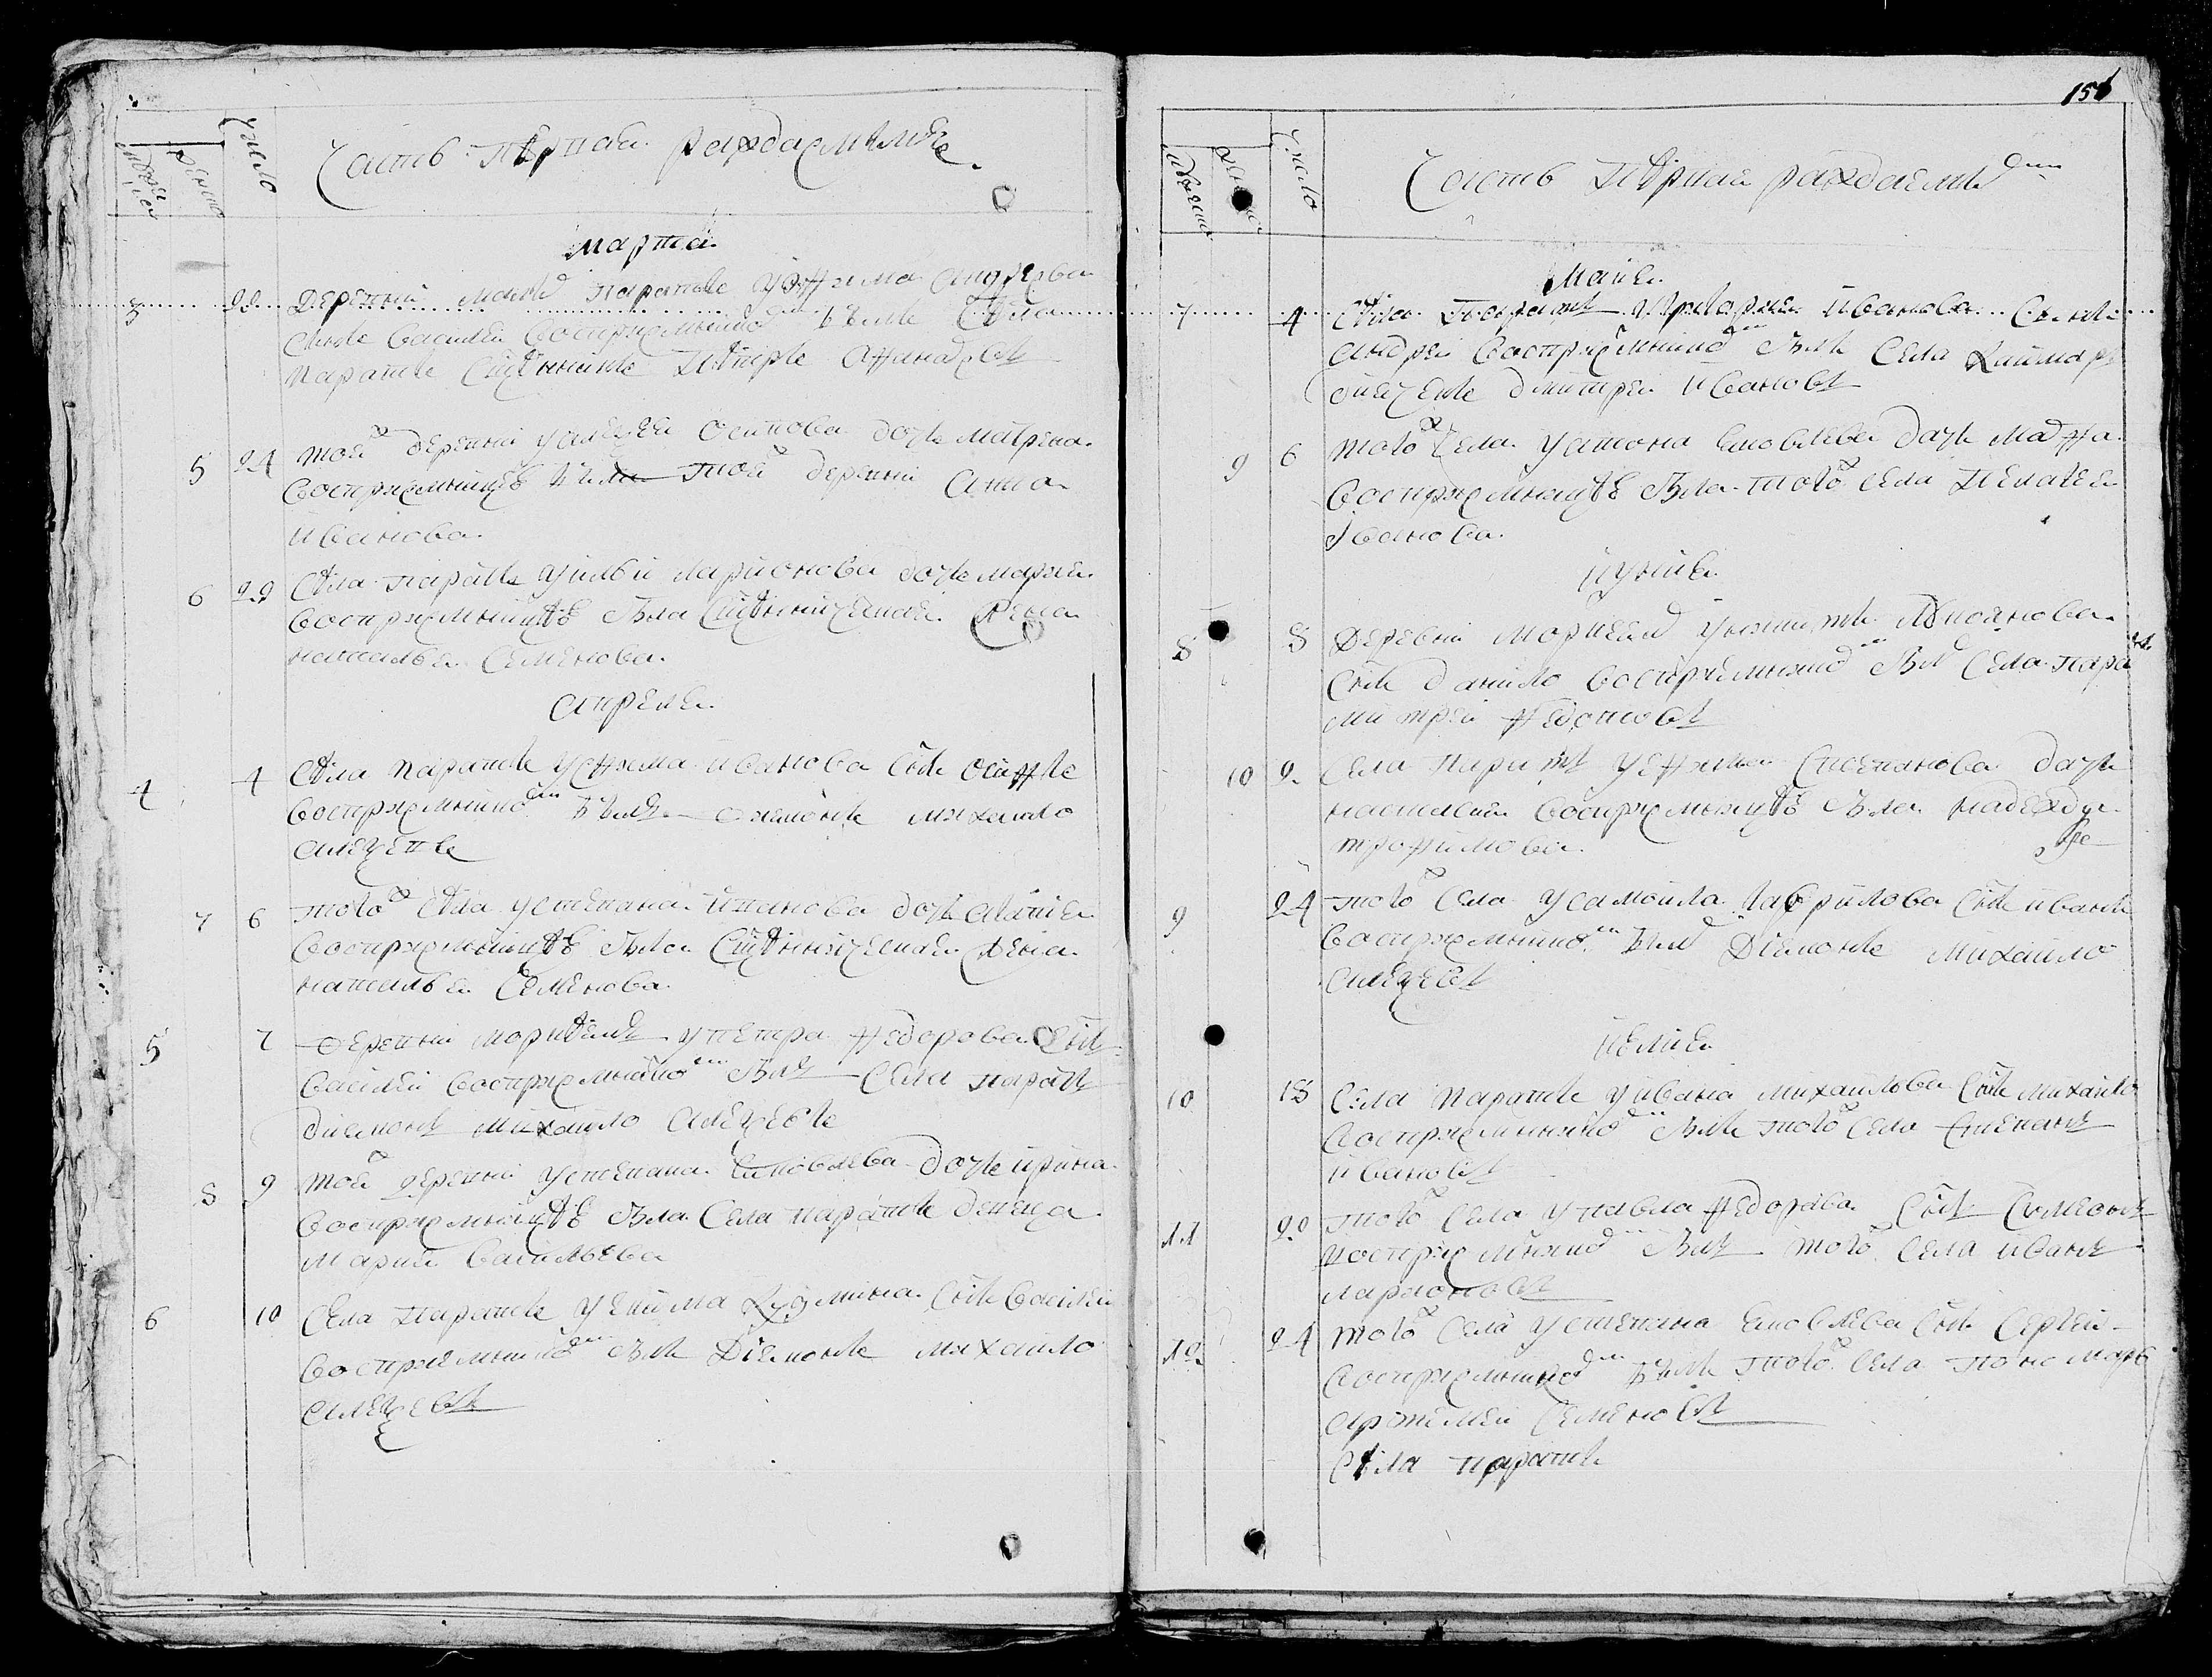 число
Часть первая раждаемыхъ
марта
3 22 Деревни малой паратъ у ефима андреева
сынъ василеи восприемникомъ былъ села
паратъ сщенникъ петръ
5 24 тоеж деревни у алеѯея осипова дочь матрена
восприемницею была тоеж деревни анна
иванова
6 29 села паратъ у ильи ларионова дочь мария
восприемницею была сщенническая жена
наталья семенова
апреля
4 4 села паратъ у ефима иванова сынъ осифъ
восприемникомъ былъ дияконъ михаило
алеѯевъ
7 6 тогож села у степана иванова дочь
восприемницею была сщенническая жена
наталья семенова
5 7 деревни у петра федорова сынъ
василеи восприемникомъ былъ села паратъ
дияконъ михаило алеѯеевъ
8 9 тоеж деревни у степана яковлева дочь ирина
восприемницею была села паратъ девица
мария васильева
6 10 села паратъ у екима кузмина сынъ василеи
восприемникомъ былъ диаконъ михаило
алеѯевъ
156
число
Часть первая раждаемыхъ
маия
7 4 села паратъ у григория иванова сынъ
андреи восприемникомъ былъ села
дияченъ димитреи ивановъ
9 6 тогож села у антона яковлева дочь марфа
восприемницею была тогож села пелагея
иванова
иуния
8 8 Деревни у никиты
сынъ данило восприемникомъ былъ села паратъ
митреи федотовъ
10 9 села паратъ у ефима степанова дочь
настасия восприемницею была надежда
трофимова
9 24 тогож села у самоила гаврилова сынъ иванъ
восприемникомъ былъ диаконъ михаило
алеѯевъ
иулия
10 18 села паратъ у ивана михаилова сынъ михаило
восприемникомъ былъ тогож села степанъ
ивановъ
11 20 тогож села у павла федорова сынъ симеонъ
восприемникомъ былъ тогож села иванъ
ларионовъ
12 24 тогож села у степана яковлева сынъ сергеи
восприемникомъ былъ тогож села пономарь
артемеи семеновъ
села паратъ